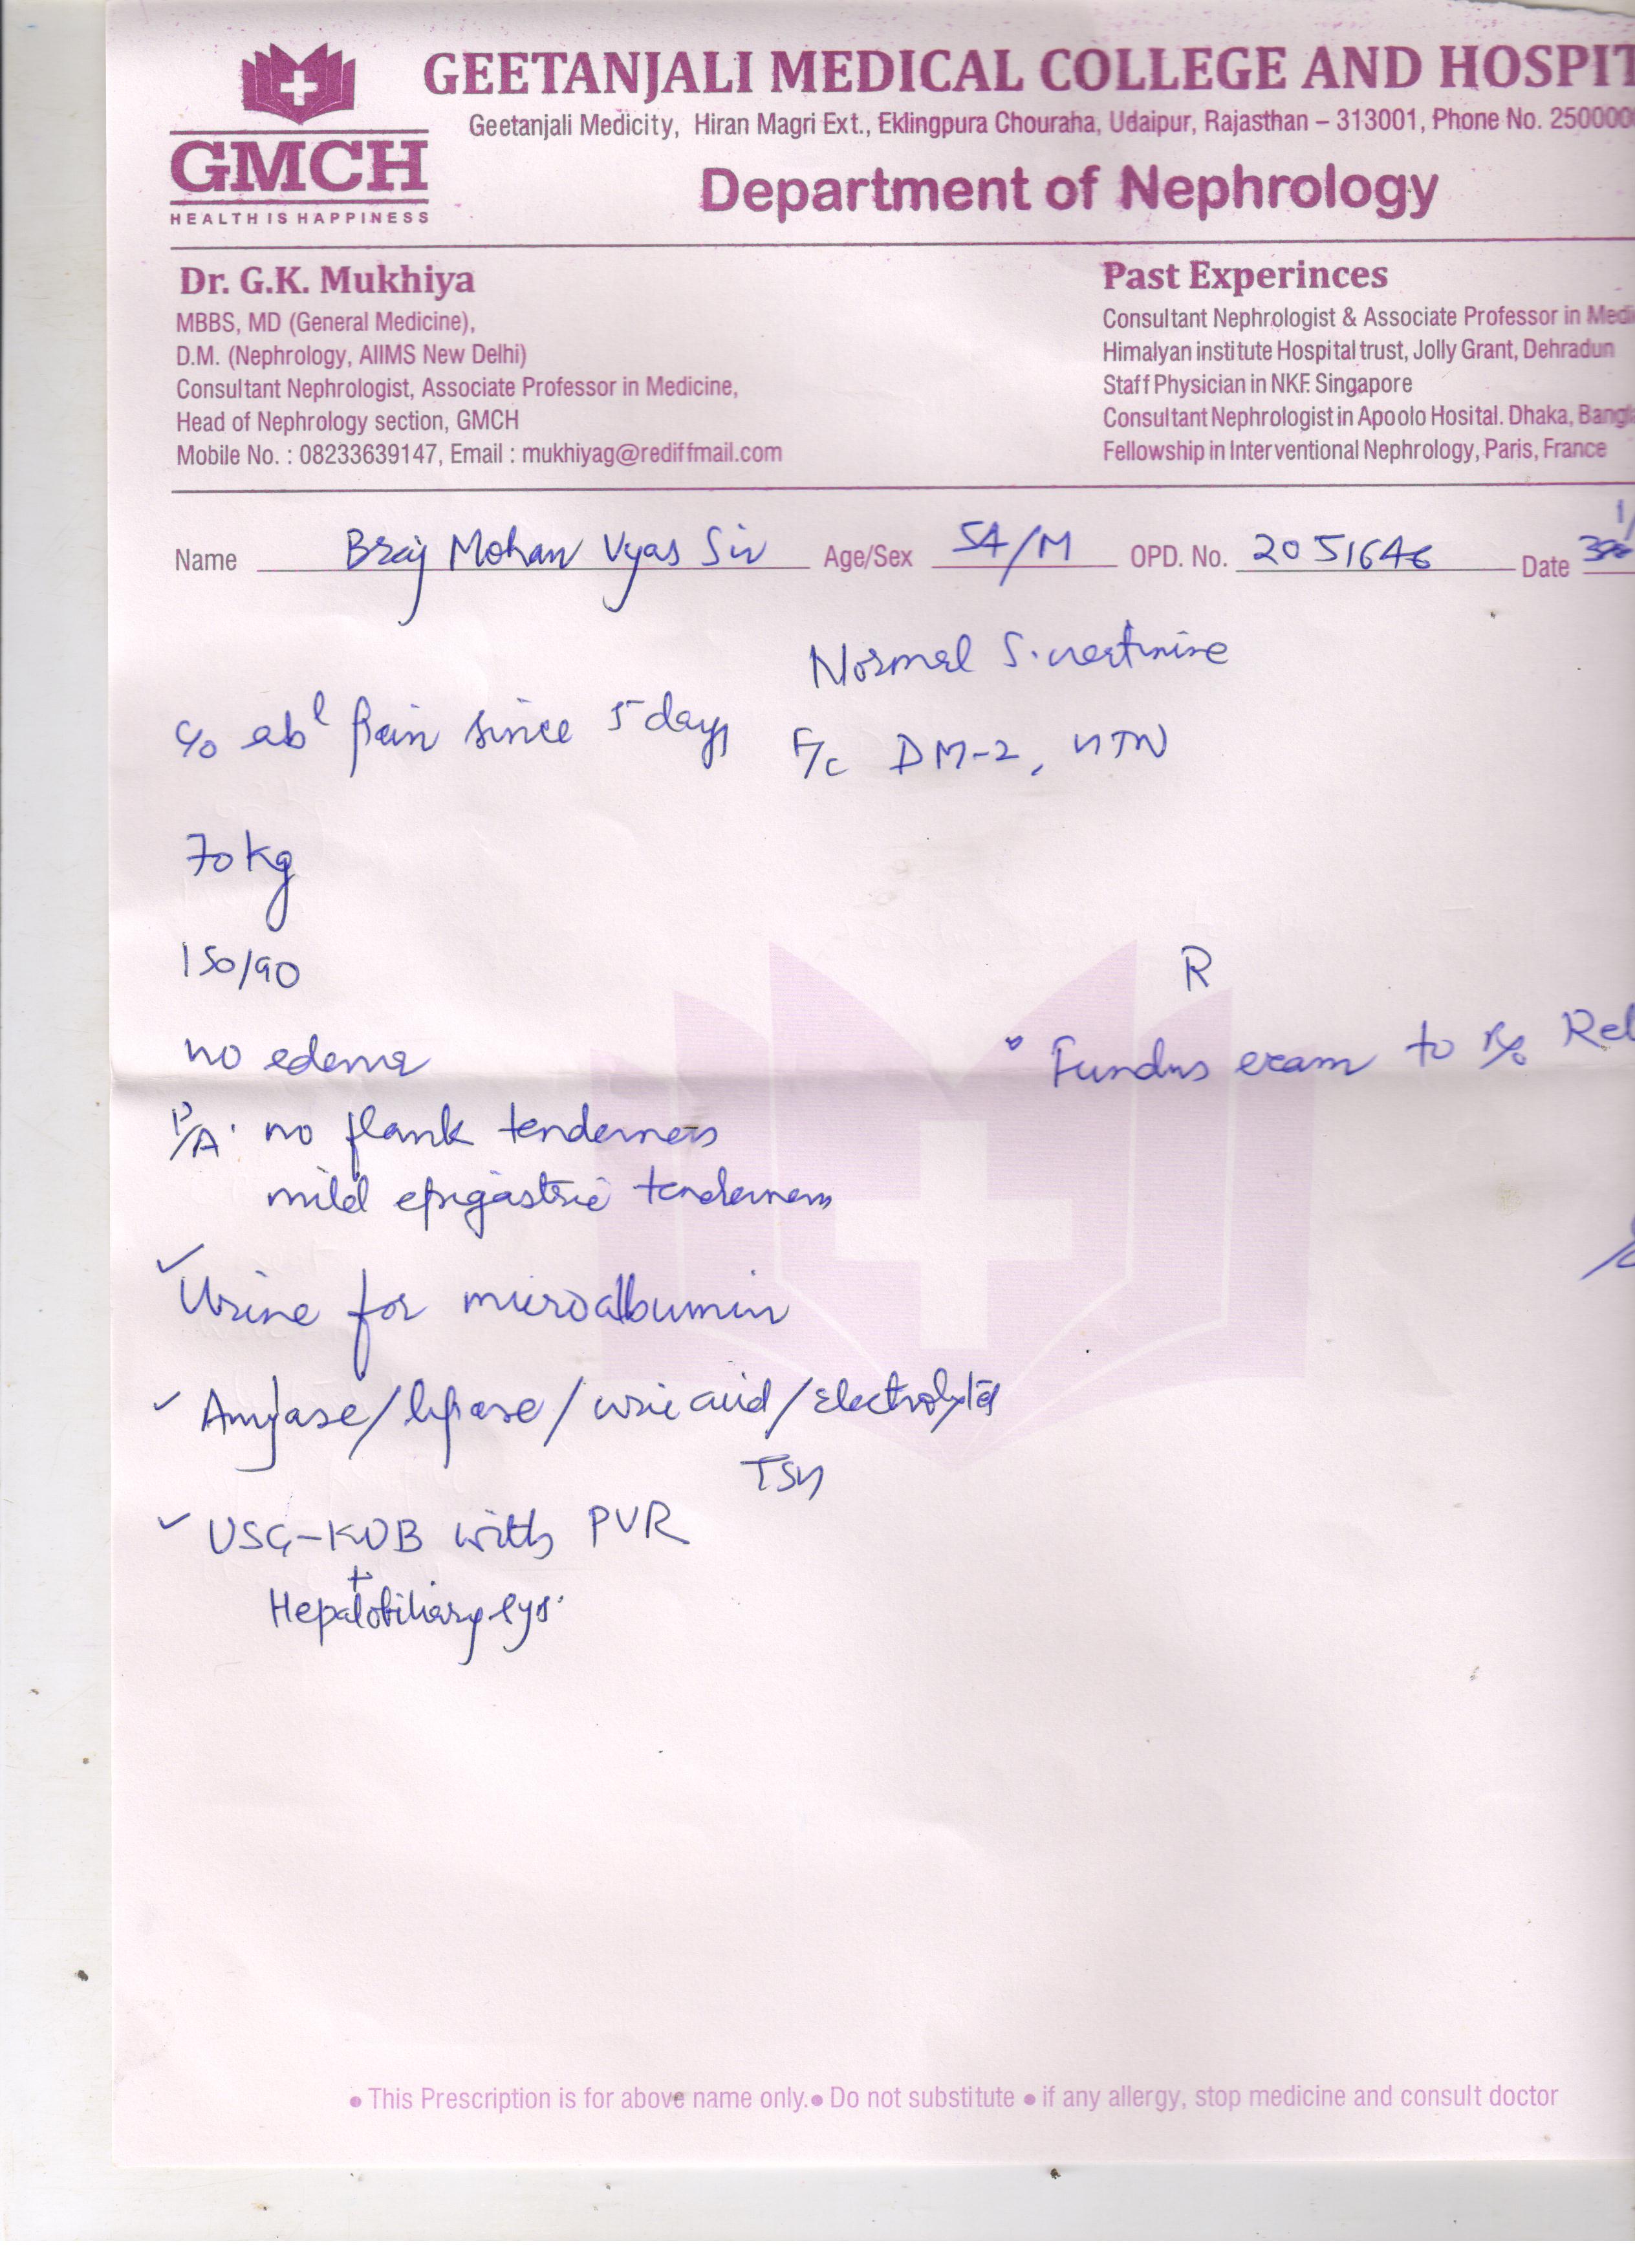 GEETANJALI MEDICAL COLLEGE AND HOSPIT
Geetanjali Medicity, Hiran Magri Ext., Eklingpura Chouraha, Udaipur, Rajasthan – 313001, Phone No. 250000
GMCH
HEALTH IS HAPPINESS
Department of Nephrology
Dr. G.K. Mukhiya
MBBS, MD (General Medicine),
D.M. (Nephrology, AIIMS New Delhi)
Consultant Nephrologist, Associate Professor in Medicine,
Head of Nephrology section, GMCH
Mobile No. : 08233639147, Email : mukhiyag@rediffmail.com
Past Experinces
Consultant Nephrologist & Associate Professor in Medi
Himalyan institute Hospital trust, Jolly Grant, Dehradun
Staff Physician in NKF. Singapore
Consultant Nephrologist in Apoolo Hosital. Dhaka, Bangla
Fellowship in Interventional Nephrology, Paris, France
Name Braj Mohan Vyas Sir Age/Sex 54/M OPD. No. 2051646 Date
Normal S. creatinine
c/o abl pain since 5 days
F/c DM-2, HTN
70 kg
150/90
no edema
R
Fundus exam to R/o Ret
P/A. no flank tenderness
mild epigastric tenderness
✓ Urine for microalbumin
✓ Amylase/lipase/uric acid/electrolytes
TSH
✓ USG-KUB with PVR
+
Hepatobiliary sys.
• This Prescription is for above name only. • Do not substitute • if any allergy, stop medicine and consult doctor